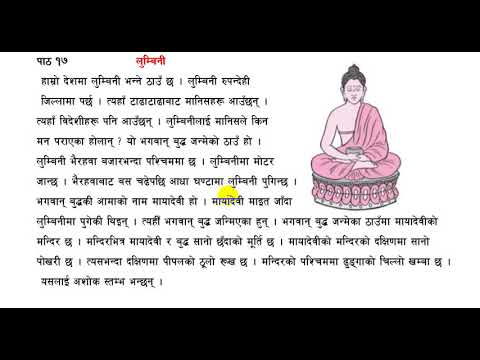 पाठ १७ लुम्बिनी
हाम्रो देशमा लुम्बिनी भन्ने ठाउँ छ । लुम्बिनी रुपन्देही
जिल्लामा पर्छ । त्यहाँ टाढाटाढाबाट मानिसहरू आउँछन् ।
त्यहाँ विदेशीहरू पनि आउँछन् । लुम्बिनीलाई मानिसले किन
मन पराएका होलान् ? यो भगवान् बुद्ध जन्मेको ठाउँ हो ।
लुम्बिनी भैरहवा बजारभन्दा पश्चिममा छ । लुम्बिनीमा मोटर
जान्छ । भैरहवाबाट बस चढेपछि आधा घण्टामा लुम्बिनी पुगिन्छ ।
भगवान् बुद्धकी आमाको नाम मायादेवी हो । मायादेवी माइत जाँदा
लुम्बिनीमा पुगेकी थिइन् । त्यहीँ भगवान् बुद्ध जन्मिएका हुन् । भगवान् बुद्ध जन्मेका ठाउँमा मायादेवीको
मन्दिर छ । मन्दिरभित्र मायादेवी र बुद्ध सानो छँदाको मूर्ति छ । मायादेवीको मन्दिरको दक्षिणमा सानो
पोखरी छ । त्यसभन्दा दक्षिणमा पीपलको ठूलो रूख छ । मन्दिरको पश्चिममा ढुङ्गाको चिल्लो खम्बा छ ।
यसलाई अशोक स्तम्भ भन्छन् ।